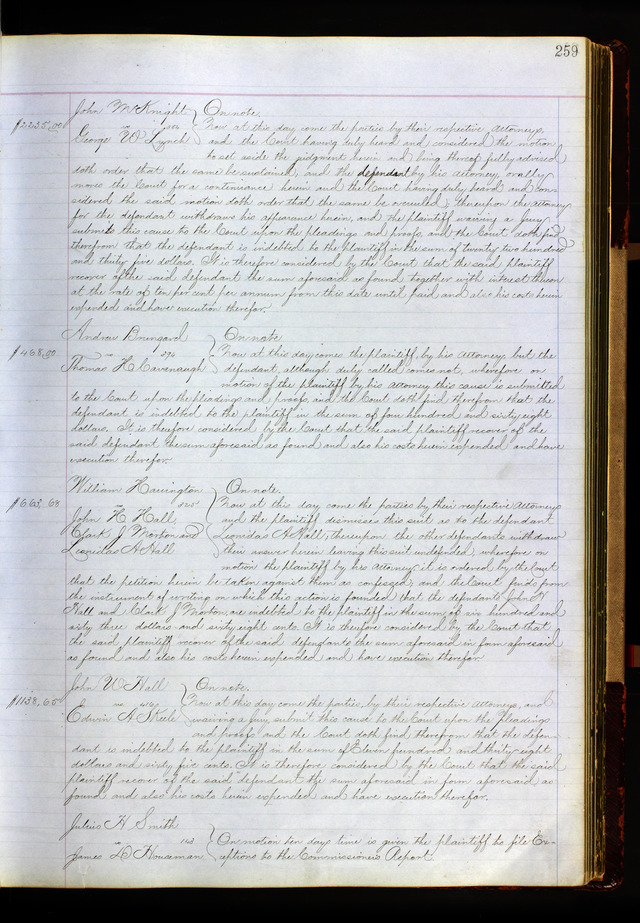 259
John McKnight } On note.
$2235.00 vs Now at this day come the parties by their respective Attorneys,
George W Lynch and the Court having duly heard and considered the motion
to set aside the judgment herein and being thereof fully advised
doth order that the same be sustained, and the defendant by his Attorney orally
moves the Court for a continuance herein and the Court having duly heard and con-
sidered the said motion doth order that the same be overruled, thereupon the attorney
for the defendant withdraws his appearance herein, and the plaintiff waiving a jury
submits this cause to the Court upon the pleadings and proofs and the Court doth find
therefrom that the defendant is indebted to the plaintiff in the sum of twenty two hundred
and thirty five dollars. It is therefore considered by the Court that the said plaintiff
recover of the said defendant the sum aforesaid as found together with interest thereon
at the rate of ten per cent per annum from this date until paid and also his costs herein
expended and have execution therefor.
Andrew Brungard } On note
$468.00 vs 394 Now at this day comes the plaintiff by his Attorney but the
Thomas H Cavanaugh defendant although duly called comes not, wherefore on
motion of the plaintiff by his Attorney this cause is submitted
to the Court upon the pleadings and proofs and the Court doth find therefrom that the
defendant is indebted to the plaintiff in the sum of four hundred and sixty eight
dollars. It is therefore considered by the Court that the said plaintiff recover of the
said defendant the sum aforesaid as found and also his costs herein expended and have
execution therefor.
William Harrington } On note.
$663.68 vs Now at this day come the parties by their respective Attorneys
John H Hall, and the plaintiff dismisses this suit as to the defendant
Clark J Morton and Leonidas A Hall, thereupon the other defendants withdraw
Leonidas A Hall their answer herein leaving this suit undefended, wherefore on
motion the plaintiff by his Attorney it is ordered by the Court
that the petition herein be taken against them as confessed, and the Court finds from
the instrument of writing on which this action is founded that the defendants John H
Hall and Clark J Morton, are indebted to the plaintiff in the sum of six hundred and
sixty three dollars and sixty eight cents. It is therefore considered by the Court that
the said plaintiff recover of the said defendants the sum aforesaid in form aforesaid
as found and also his costs herein expended and have execution therefor
John W Hall } On note.
$1138.65 vs 416 Now at this day come the parties, by their respective Attorneys, and
Edwin A Steele waiving a jury, submit this cause to the Court upon the pleadings
and proofs and the Court doth find therefrom that the defen-
dant is indebted to the plaintiff in the sum of Eleven hundred and thirty eight
dollars and sixty five cents. It is therefore considered by the Court that the said
plaintiff recover of the said defendant the sum aforesaid in form aforesaid as
found and also his costs herein expended and have execution therefor.
Julius H Smith
vs 143 } On motion ten days time is given the plaintiff to file Ex-
James D Houseman ceptions to the Commissioners Report.